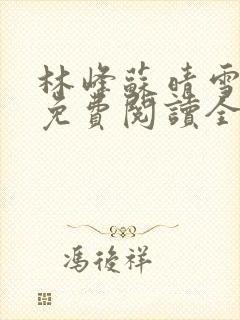 林峰蘇晴雪
免費閱讀全
馮後祥